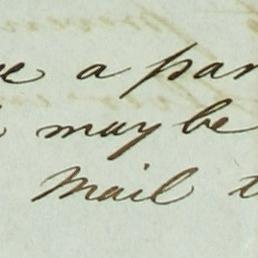 a par
may be
Mail t